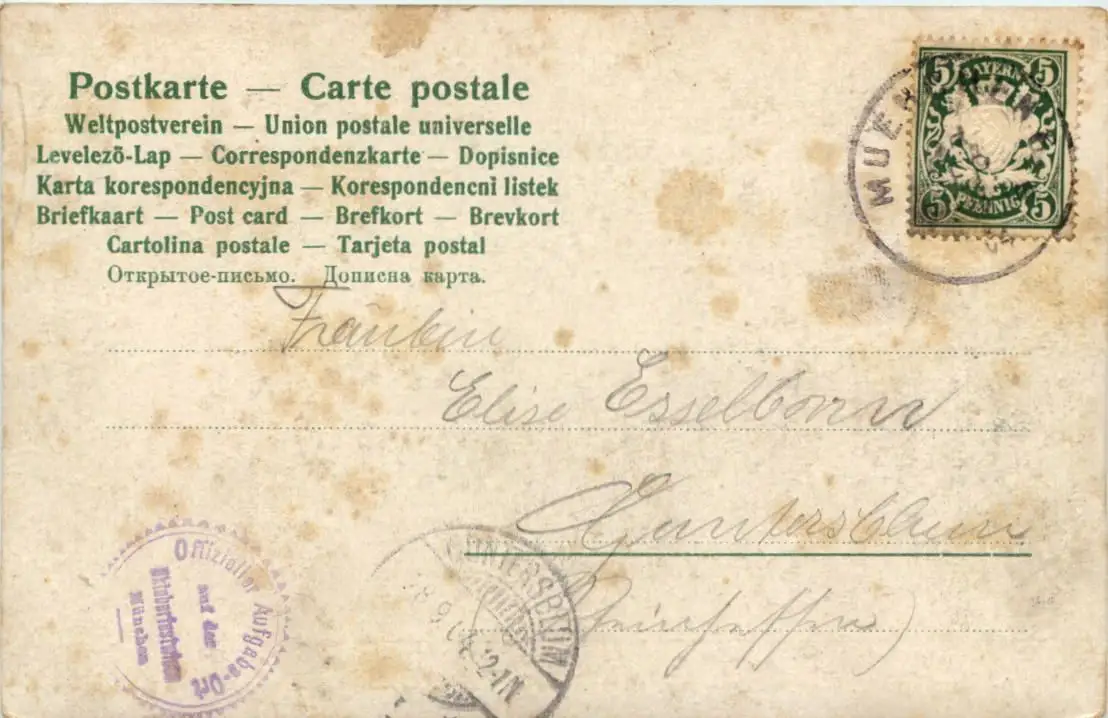 Postkarte — Carte postale
Weltpostverein — Union postale universelle
Levelezõ-Lap — Correspondenzkarte — Dopisnice
Karta korespondencyjna — Korespondencni listek
Briefkaart — Post card — Brefkort — Brevkort
Cartolina postale — Tarjeta postal
Открытое-письмо. Дописна карта.
5 BAYERN 5
5 PFENNIG 5
MUE
Fräulein
Elise Esselborn
Guntersblum
GUNTERSBLUM
Offizieller Aufgabe-Ort
auf der
Oktoberfestwiese
München